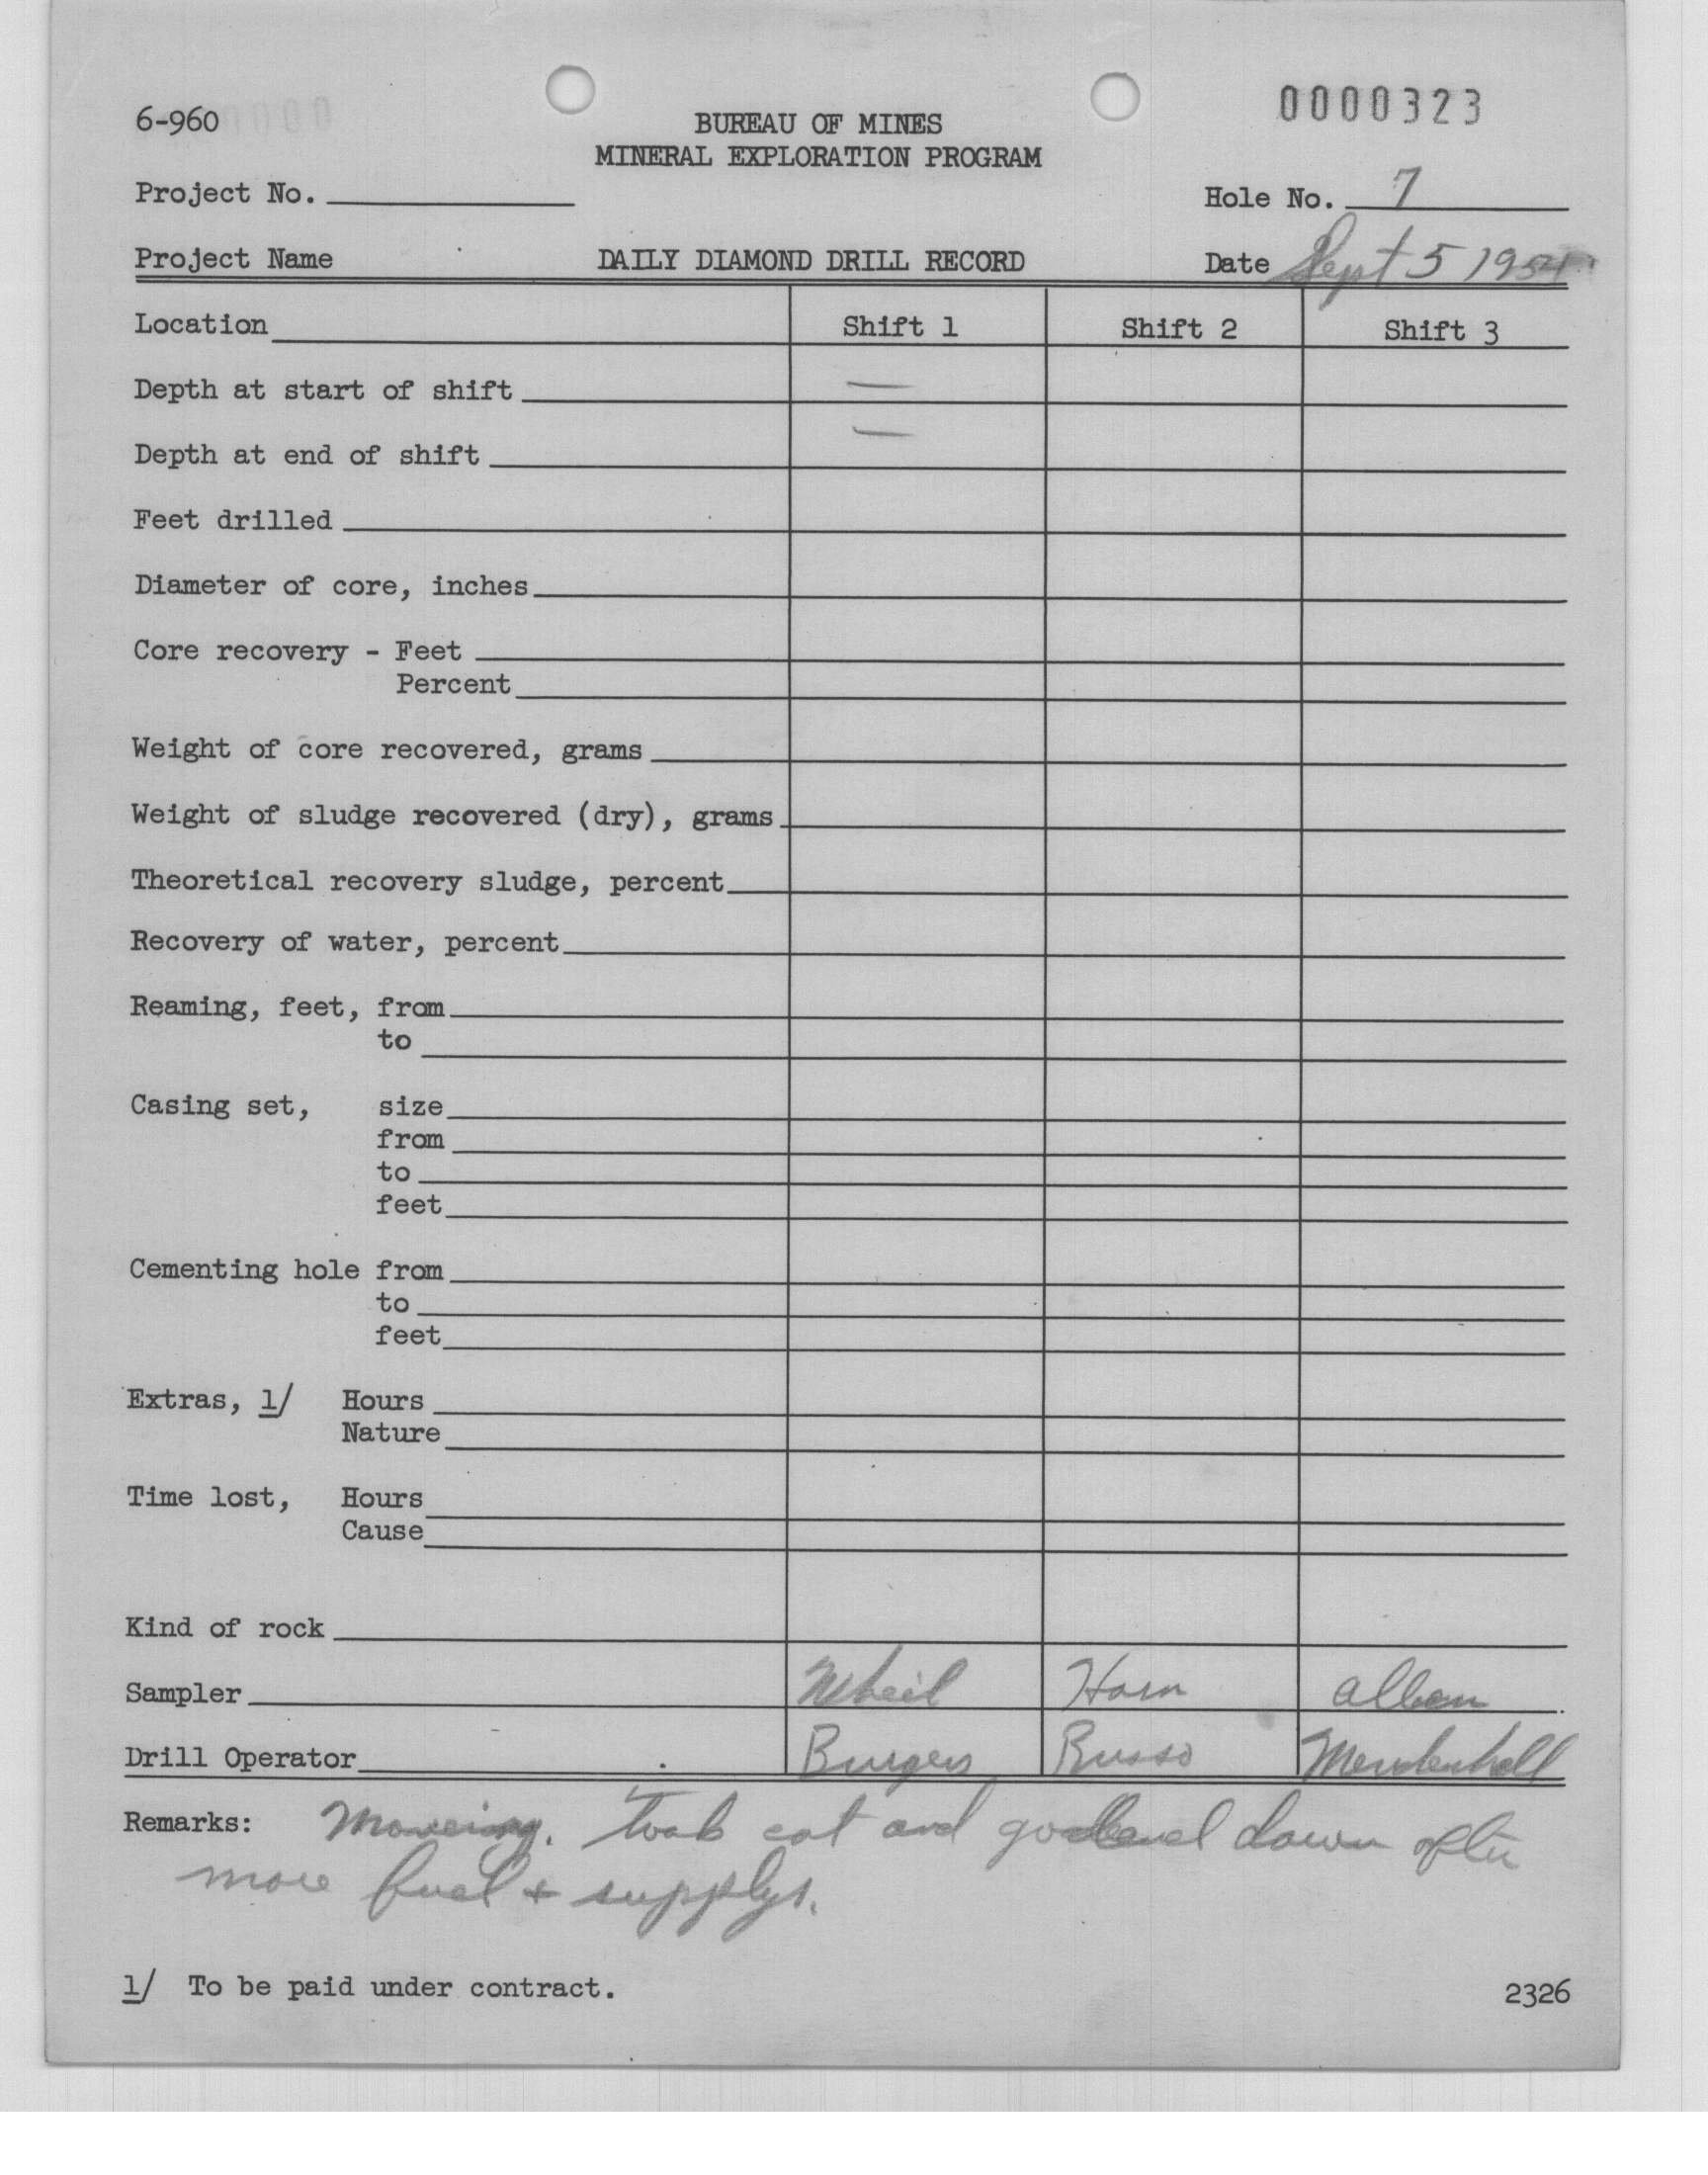 6-960
0000323
BUREAU OF MINES
MINERAL EXPLORATION PROGRAM
Project No.
Hole No. 7
Project Name DAILY DIAMOND DRILL RECORD Date Sept 5 195
Location Shift 1 Shift 2 Shift 3
Depth at start of shift —
Depth at end of shift —
Feet drilled
Diameter of core, inches
Core recovery - Feet
Percent
Weight of core recovered, grams
Weight of sludge recovered (dry), grams
Theoretical recovery sludge, percent
Recovery of water, percent
Reaming, feet, from
to
Casing set, size
from
to
feet
Cementing hole from
to
feet
Extras, 1/ Hours
Nature
Time lost, Hours
Cause
Kind of rock
Sampler Horn
Drill Operator Burgess Russo Mendenhall
Remarks: cat and down after
more fuel + supplys.
1/ To be paid under contract.
2326